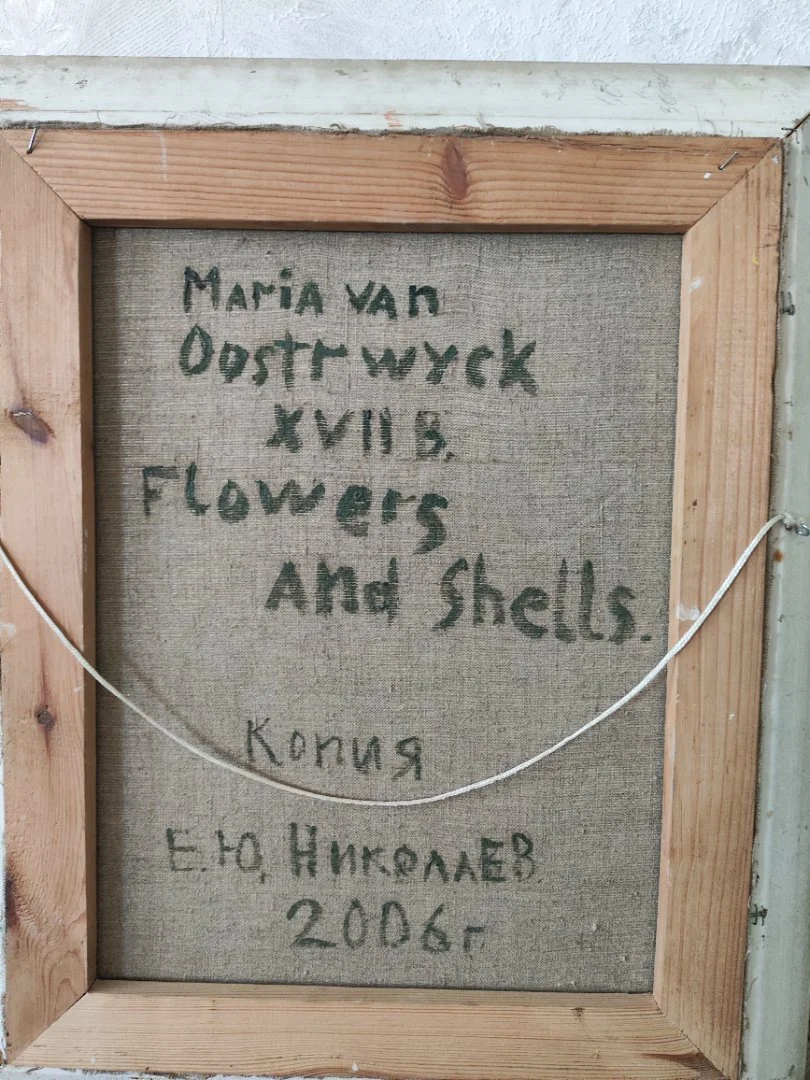 Maria van
Oostrwyck
XVII В.
Flowers
And Shells.
Копия
Е.Ю. Николаев
2006г